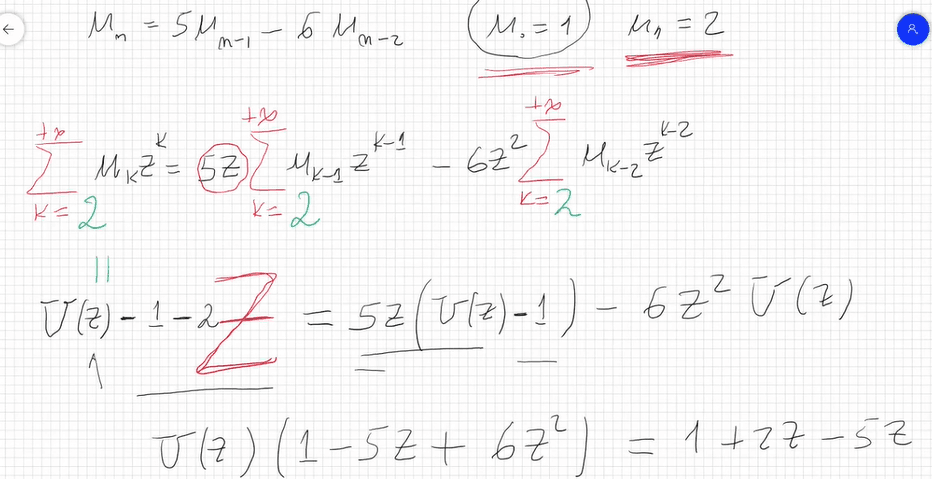 μₙ = 5μₙ₋₁ − 6μₙ₋₂ (μ₀ = 1) μ₁ = 2
∑_{k=2}^{+∞} μ_k z^k = 5z ∑_{k=2}^{+∞} μ_{k-1} z^{k-1} − 6z² ∑_{k=2}^{+∞} μ_{k-2} z^{k-2}
||
U(z) − 1 − 2z = 5z(U(z) − 1) − 6z² U(z)
U(z) (1 − 5z + 6z²) = 1 + 2z − 5z